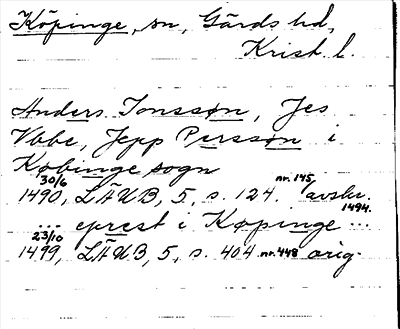 Köpinge, sn, Gärds hd,
Krist. l.
Anders Jonssøn, Jes
Vbbe, Jepp Perssøn i
Købinge sogn
30/6 nr. 145,
1490, LÄUB, 5, s. 124. avskr.
1494.
... eprest i Køpinge ...
23/10
1499, LÄUB, 5, s. 404 nr. 448 orig.